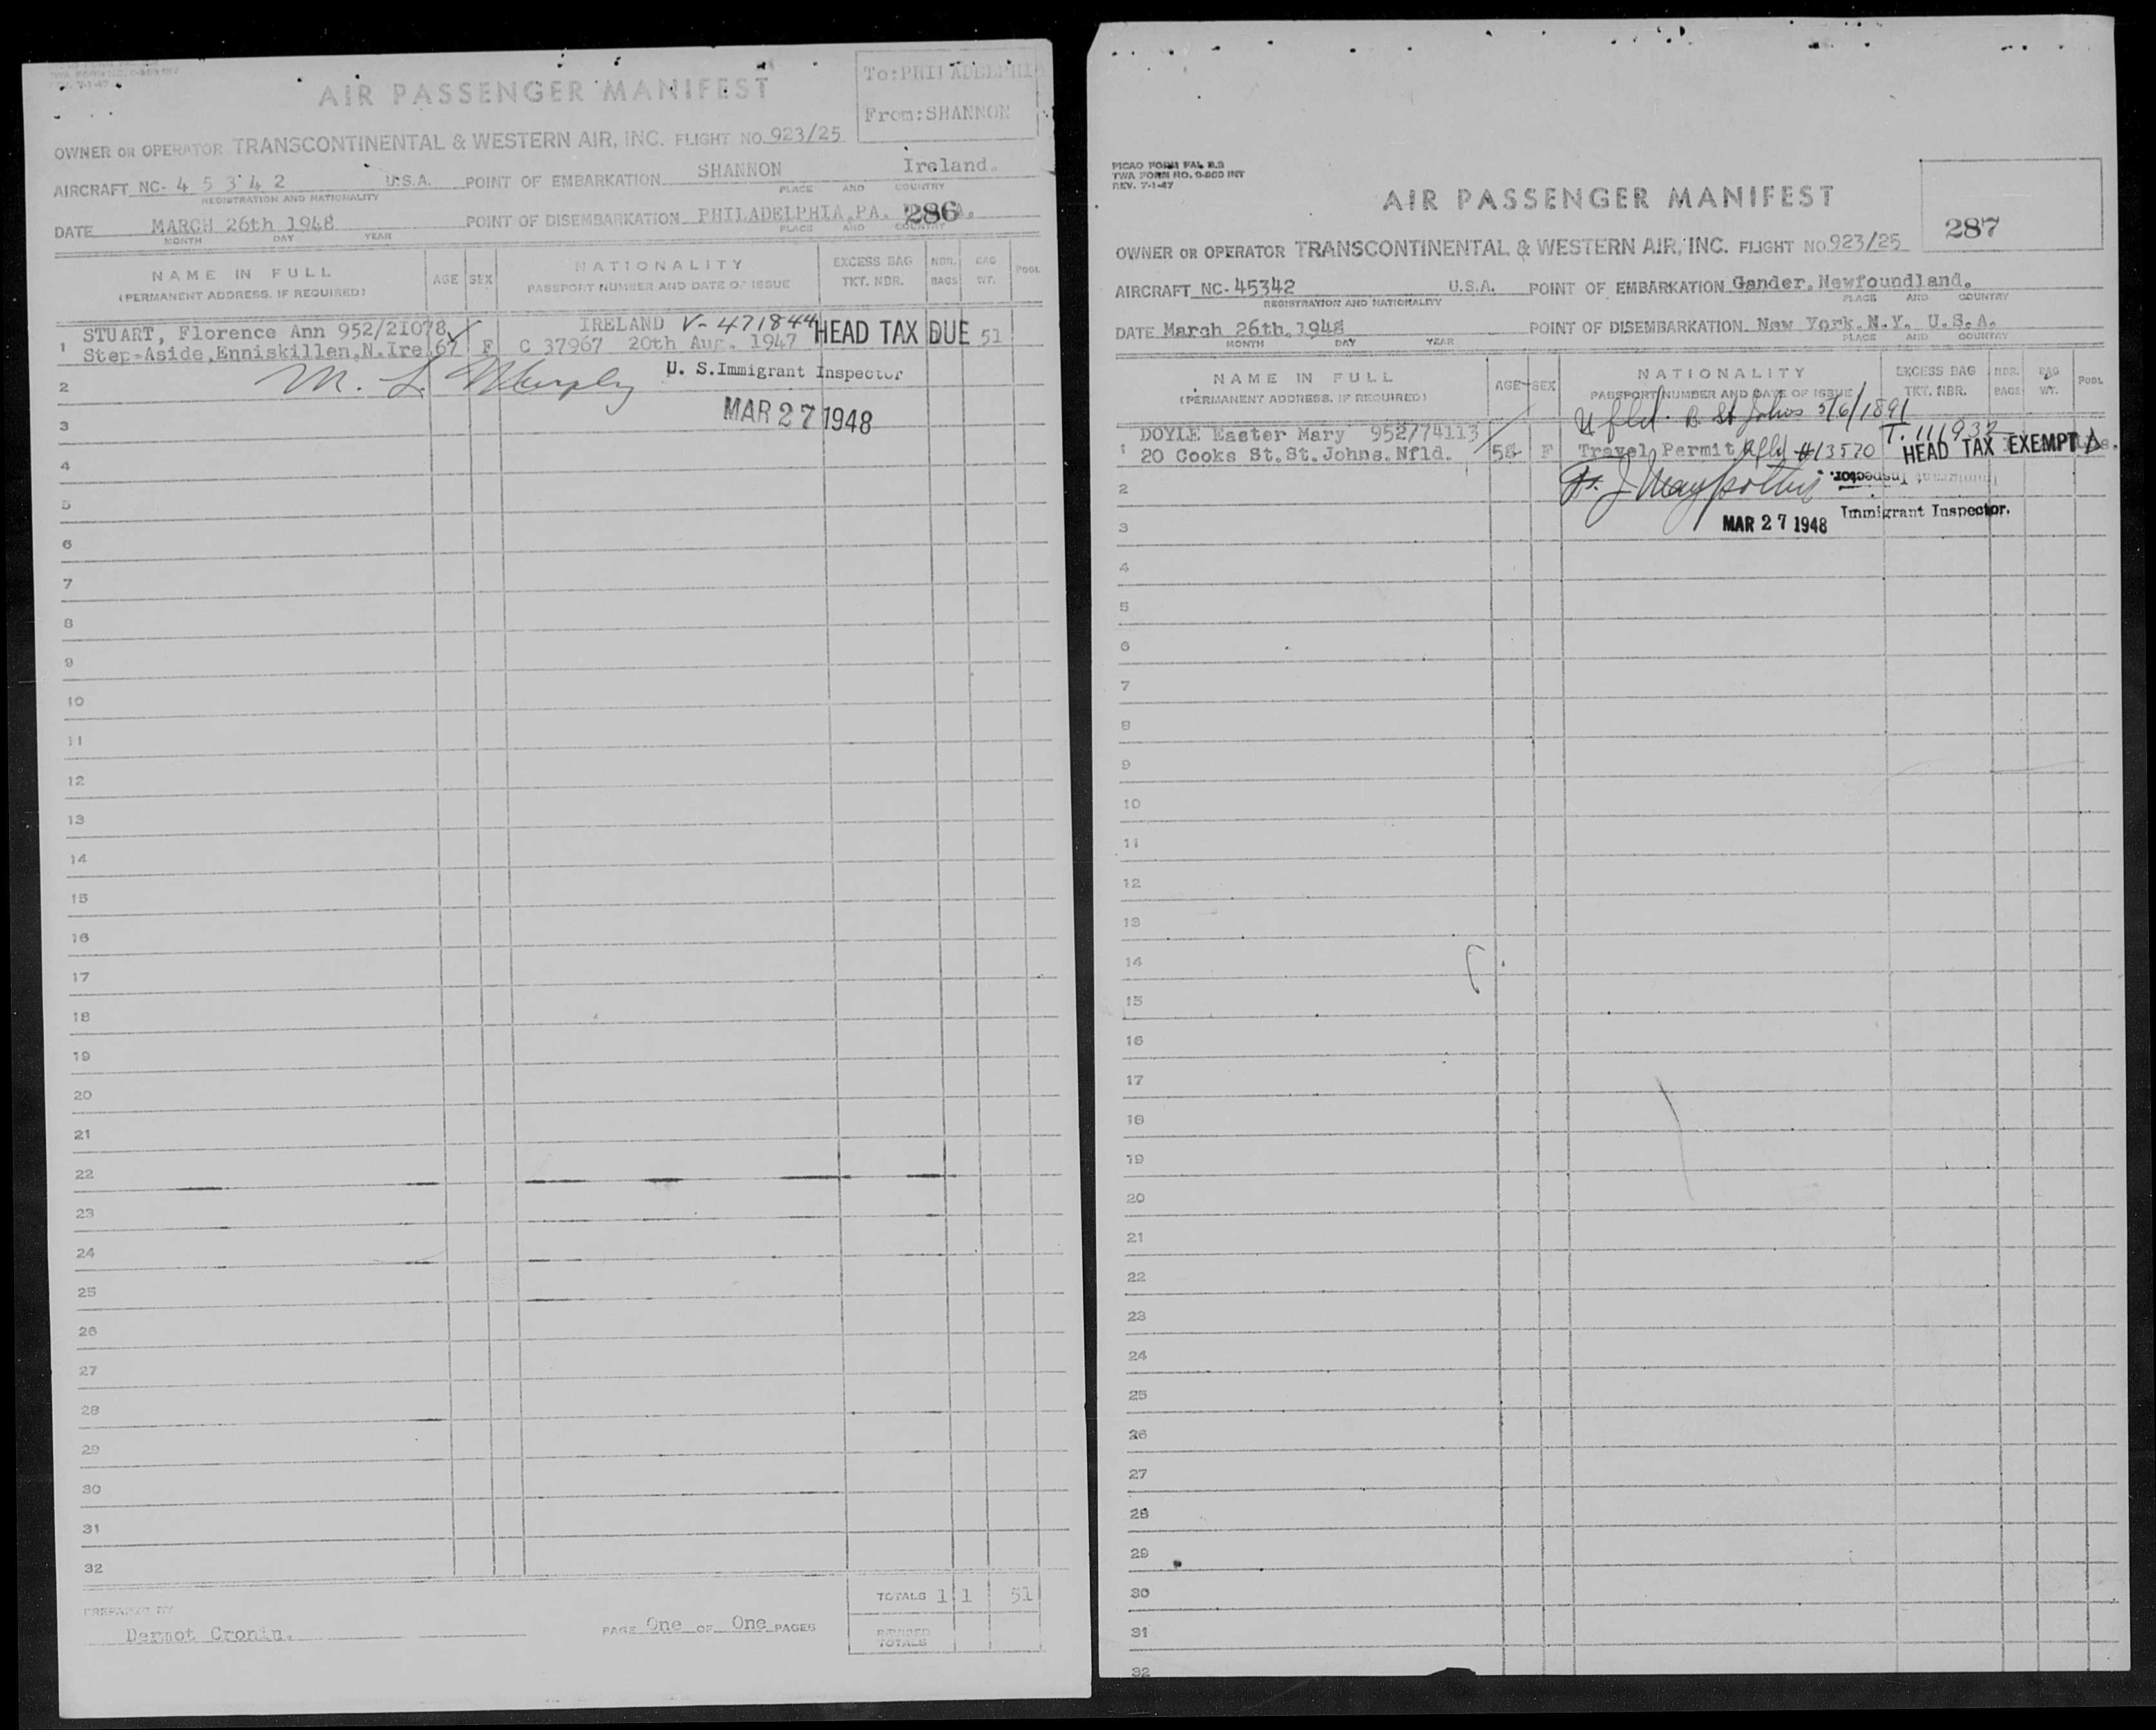 TWA FORM NO. 0-900 INT
7-1-47
AIR PASSENGER MANIFEST
To:PHILADELPHIA
From:SHANNON
OWNER OR OPERATOR TRANSCONTINENTAL & WESTERN AIR, INC. FLIGHT NO. 923/25
AIRCRAFT NC- 4 5 3 4 2 U.S.A. POINT OF EMBARKATION SHANNON Ireland.
REGISTRATION AND NATIONALITY PLACE AND COUNTRY
DATE MARCH 26th 1948 POINT OF DISEMBARKATION PHILADELPHIA,PA. 286
MONTH DAY YEAR PLACE AND COUNTRY
NAME IN FULL AGE SEX NATIONALITY EXCESS BAG NBR. BAG POOL
(PERMANENT ADDRESS, IF REQUIRED) PASSPORT NUMBER AND DATE OF ISSUE TKT. NBR. BAGS WT.
STUART, Florence Ann 952/21078 IRELAND V-471844 HEAD TAX DUE 51
1 Step-Aside,Enniskillen,N.Ire. 67 F C 37967 20th Aug. 1947
2 M. L. Murphy U. S. Immigrant Inspector
3 MAR 27 1948
4
5
6
7
8
9
10
11
12
13
14
15
16
17
18
19
20
21
22
23
24
25
26
27
28
29
30
31
32
TOTALS 1 1 51
PREPARED BY
Dermot Cronin. PAGE One OF One PAGES
REVISED TOTALS
PICAO FORM FAL 2.3
TWA FORM NO. 0-900 INT
REV. 7-1-47
AIR PASSENGER MANIFEST
287
OWNER OR OPERATOR TRANSCONTINENTAL & WESTERN AIR, INC. FLIGHT NO. 923/25
AIRCRAFT NC- 45342 U.S.A. POINT OF EMBARKATION Gander,Newfoundland.
REGISTRATION AND NATIONALITY PLACE AND COUNTRY
DATE March 26th,1948 POINT OF DISEMBARKATION New York.N.Y. U.S.A.
MONTH DAY YEAR PLACE AND COUNTRY
NAME IN FULL AGE SEX NATIONALITY EXCESS BAG NBR. BAG POOL
(PERMANENT ADDRESS, IF REQUIRED) PASSPORT NUMBER AND DATE OF ISSUE TKT. NBR. BAGS WT.
Nfld. B St Johns 5/6/1891
DOYLE Easter Mary 952/74113 T. 111932
1 20 Cooks St.St.Johns.Nfld. 58 F Travel Permit Nfld #13570 HEAD TAX EXEMPT
2 Immigrant Inspector.
Immigrant Inspector.
3 MAR 27 1948
4
5
6
7
8
9
10
11
12
13
14
15
16
17
18
19
20
21
22
23
24
25
26
27
28
29
30
31
32